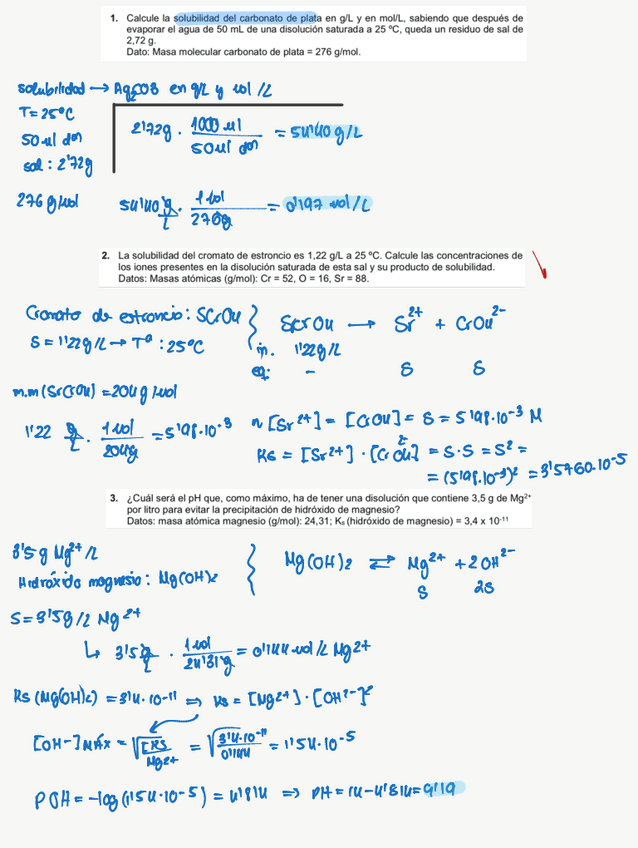 1. Calcule la solubilidad del carbonato de plata en g/L y en mol/L, sabiendo que después de
evaporar el agua de 50 mL de una disolución saturada a 25 ºC, queda un residuo de sal de
2,72 g.
Dato: Masa molecular carbonato de plata = 276 g/mol.
solubilidad → Ag2CO3 en g/L y mol/L
T=25ºC
50 ml dºn
sal: 2'72g
2'72g · 1000 ml / 50 ml dºn = 54'40 g/L
276 g/mol
54'40 g/L · 1 mol / 276g = 0'197 mol/L
2. La solubilidad del cromato de estroncio es 1,22 g/L a 25 ºC. Calcule las concentraciones de
los iones presentes en la disolución saturada de esta sal y su producto de solubilidad.
Datos: Masas atómicas (g/mol): Cr = 52, O = 16, Sr = 88.
Cromato de estroncio: SCrO4
S = 1'22g/L → Tª: 25ºC
SrCrO4 → Sr2+ + CrO4 2-
in. 1'22g/L
eq: - S S
m.m (SrCrO4) = 204 g/mol
1'22 g/L · 1 mol / 204g = 5'98·10-3
[Sr2+] = [CrO4] = S = 5'98·10-3 M
Ks = [Sr2+] · [CrO4 2-] = S·S = S2 =
= (5'98·10-3)2 = 3'5760·10-5
3. ¿Cuál será el pH que, como máximo, ha de tener una disolución que contiene 3,5 g de Mg2+
por litro para evitar la precipitación de hidróxido de magnesio?
Datos: masa atómica magnesio (g/mol): 24,31; Ks (hidróxido de magnesio) = 3,4 x 10-11
3'5 g Mg2+/L
Hidróxido magnesio: Mg(OH)2
Mg(OH)2 ⇄ Mg2+ + 2OH2-
S 2S
S = 3'5g/L Mg2+
↳ 3'5 g/L · 1 mol / 24'31 g = 0'144 mol/L Mg2+
Ks (Mg(OH)2) = 3'4·10-11 ⇒ Ks = [Mg2+] · [OH2-]2
[OH-] MÁX = √[KS / Mg2+ = √3'4·10-11 / 0'144 = 1'54·10-5
POH = -log (1'54·10-5) = 4'814 ⇒ PH = 14-4'814 = 9'19